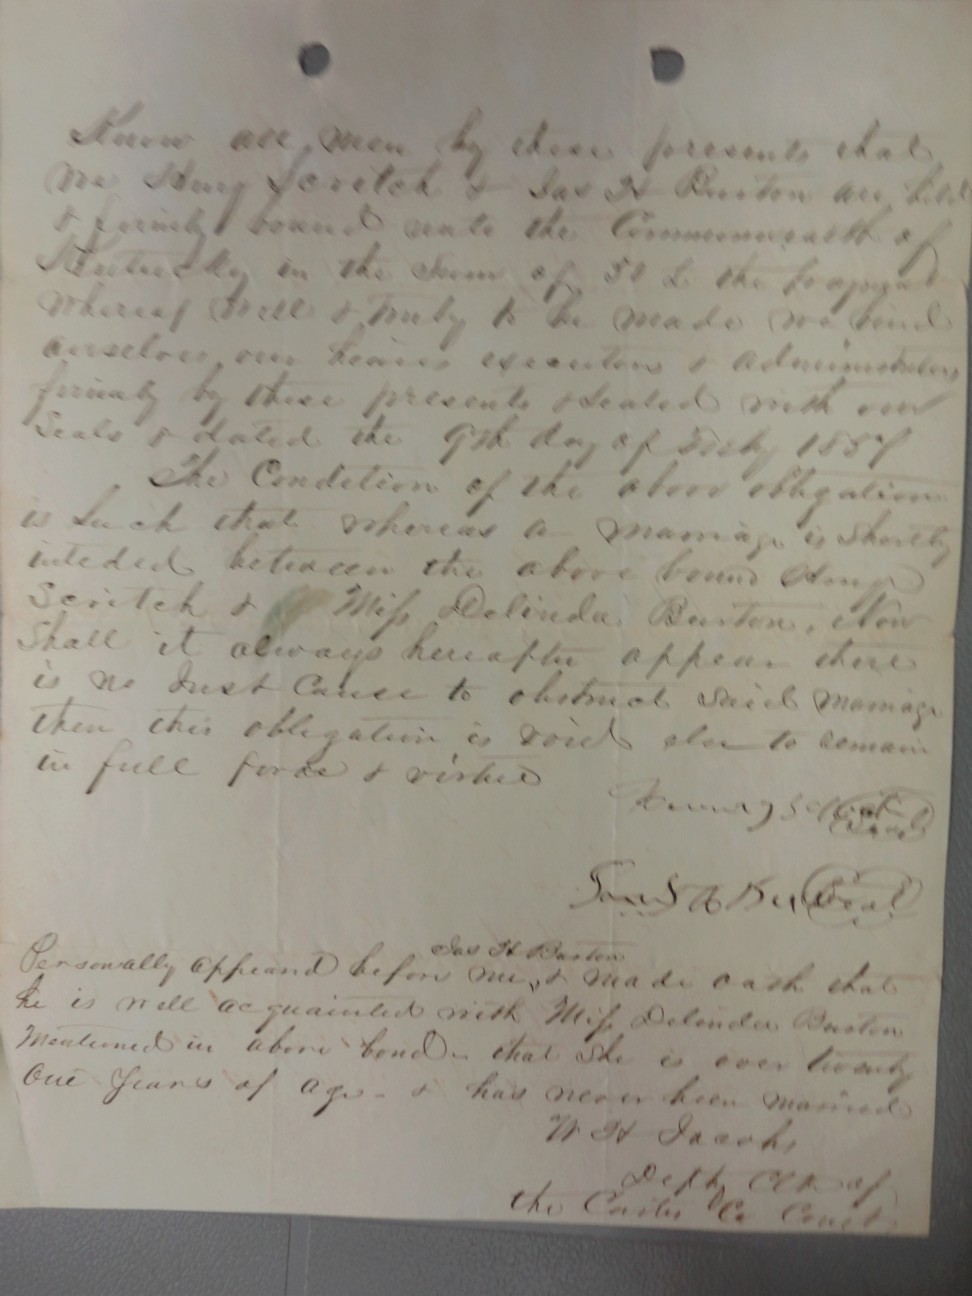 Know all men by these presents that
we Henry Scritch & Jas H Burton are held
& firmly bound unto the Commonwealth of
Kentucky in the Sum of 50 L the payment
whereof Well & truly to be made we bind
ourselves our heirs executors & administrators
firmly by these presents & Sealed with our
Seals & dated the 9th day of 185
The Condition of the above obligation
is Such that whereas a marriage is Shortly
inteded between the above bound Henry
Scritch & Miss Delinda Burton, Now
Shall it always hereafter appear there
is no Just Cause to obstruct Said marriage
then this obligation is void else to remain
in full force & virtue
Henry Seal
H Seal
Jas H Burton
Personally appeard before me, & made oath that
he is well acquainted with Miss Delinda Burton
Mentioned in above bond - that She is over twenty
One Years of age - & has never been married
W H Jacobs
Depty Clk of
the Carter Co Court